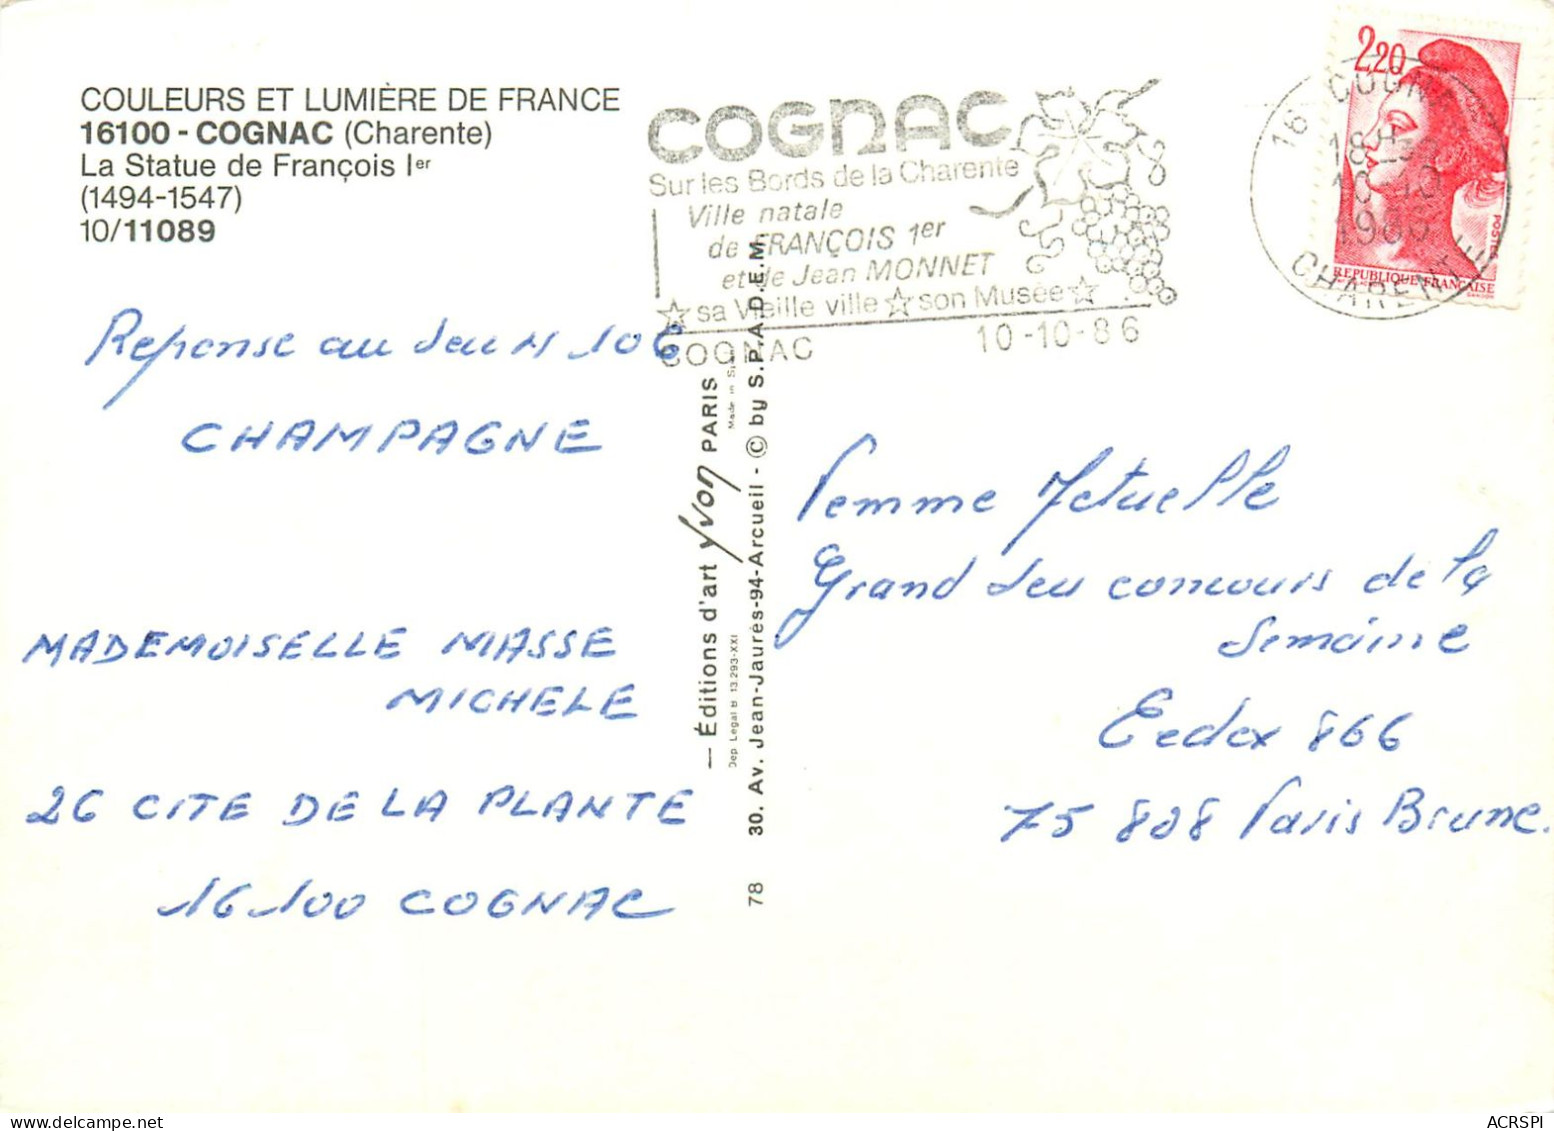 COULEURS ET LUMIÈRE DE FRANCE
16100 - COGNAC (Charente)
La Statue de François Ier
(1494-1547)
10/11089
COGNAC
Sur les Bords de la Charente
Ville natale
de FRANÇOIS 1er
et de Jean MONNET
☆ sa Vieille ville ☆ son Musée ☆
COGNAC 10-10-86
2,20
POSTES
REPUBLIQUE FRANÇAISE
16 COGNAC
18H
10-10
1986
CHARENTE
Reponse au Jeu N 106
CHAMPAGNE
MADEMOISELLE MASSE
MICHELE
26 CITE DE LA PLANTE
16100 COGNAC
— Éditions d'art Yvon PARIS
Made in
Dep Legal B 13.293-XXI
78 30. Av. Jean-Jaurès-94-Arcueil - © by S.P.A.D.E.M.
Femme Actuelle
Grand Jeu concours de la
Semaine
Cedex 866
75 808 Paris Brune.
ACRSPI